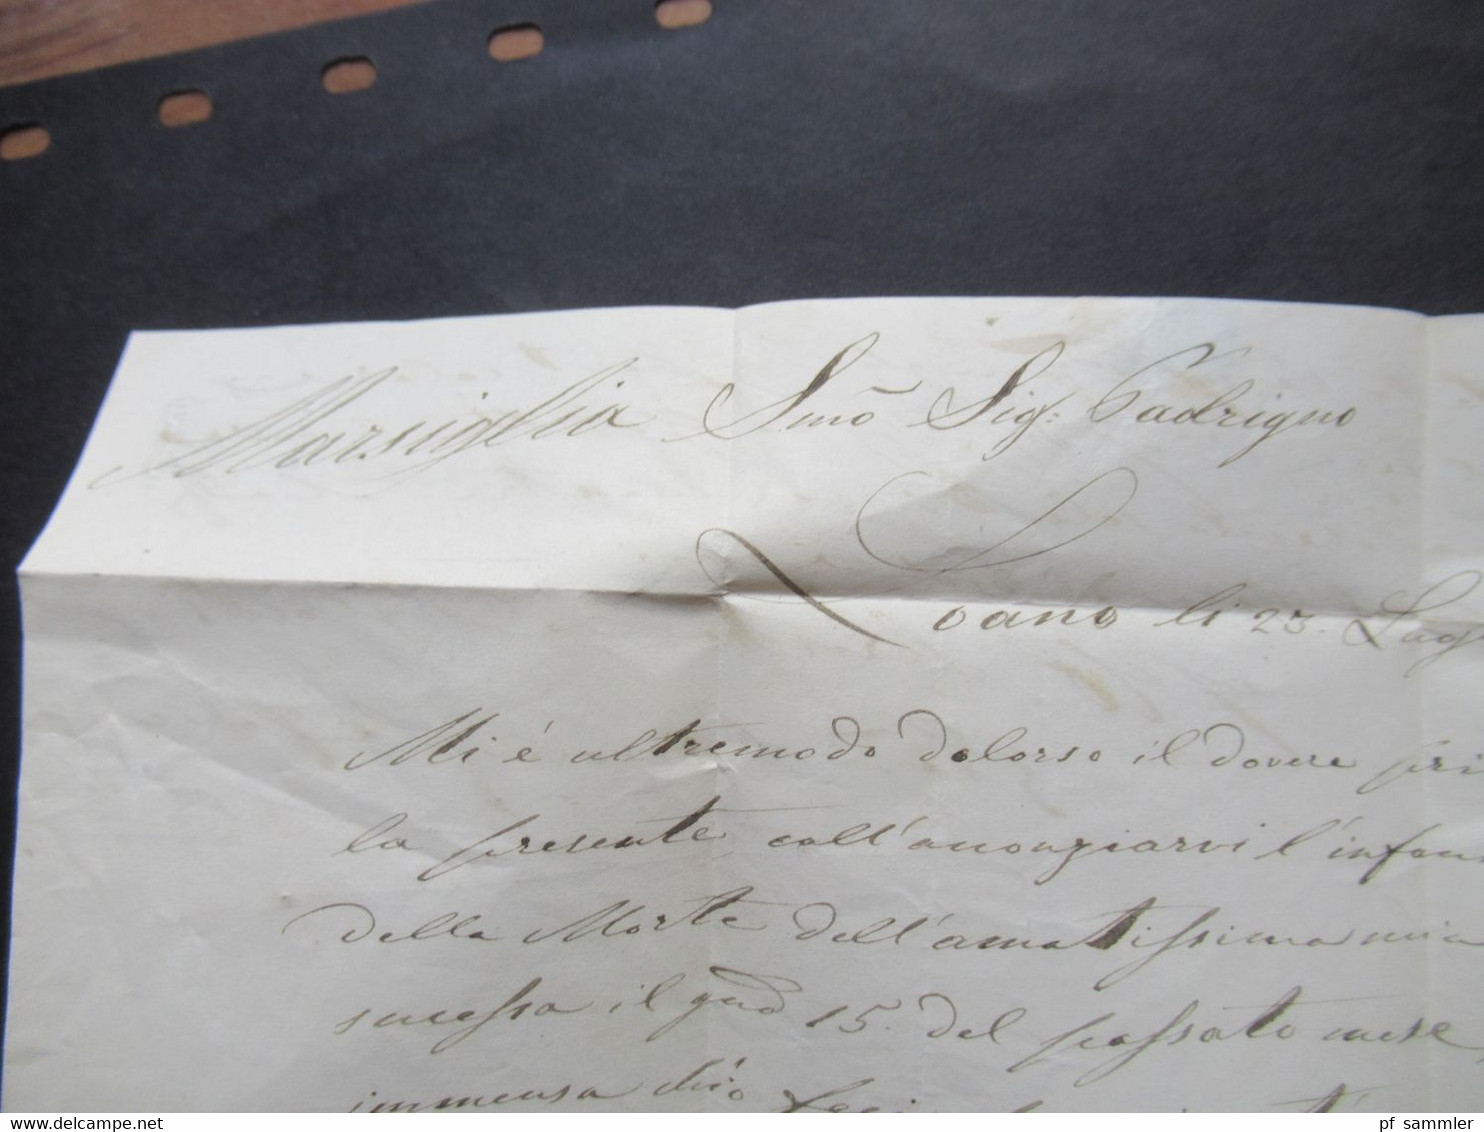 Marsiglia Smõ Sig: Padrigno
Loano li 23. Lug
Mi è ultremodo doloroso il dovere pri
la presente coll'anonziarvi l'infau
della Morte dell'amatissima mia
sucessa il gno 15. del passato mese,
immensa
delcampe.com
pf_sammler